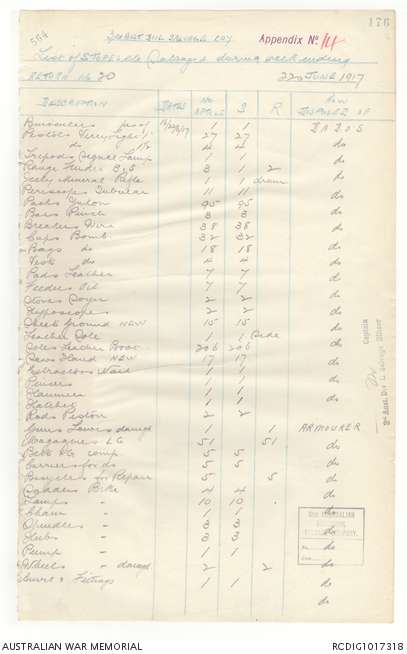 564
176
Appendix No. 14
List of Stores etc Salvaged during week ending
RETURN No 20
22nd JUNE 1917
DESCRIPTION DATES No S R HOW DISPOSED OF
1 1 D.A.D.O.S
Pistols 27 27 do
do 4 4 do
Tripods Signal Lamp 1 1 do
3 1 2 do
Rifle 1 1 do
Periscopes Tubular 11 11 do
95 95 do
Bars Punch 3 3 do
Breakers Wire 38 38 do
Cups Bomb 32 32 do
Bags do 18 18 do
Vests do 4 4 do
Pads Leather 7 7 do
Feeders Oil 7 7 do
Stoves 2 2 do
Hyposcopes 2 2 do
Sheet Ground NEW 15 15 do
Leather Sole 1 1 Side do
Soles Leather Boot 206 206 do
Saws Hand NEW 17 17 do
Extractors Nail 1 1 do
Pincers 1 1 do
Hammers 1 1 do
Hatchet 1 1 do
Rods Piston 2 2 do
Guns Lewis damgd 1 1 ARMOURER
Magazines LG 51 51 do
Belt VG comp 5 5 do
Carriers for do 5 5 do
Bicycles for Repair 5 5 do
Saddles Bike 4 4 do
Lamps " 10 10 do
Chain " 1 1 do
Spindles " 3 3 do
Hubs " 3 3 do
Pump " 1 1 do
Wheels " damgd 2 2 do
& Fittings 1 1 do
do
Captain
2nd Aust. Div'l. Salvage Officer
2ND AUSTRALIAN
AUSTRALIAN WAR MEMORIAL
RCDIG1017318